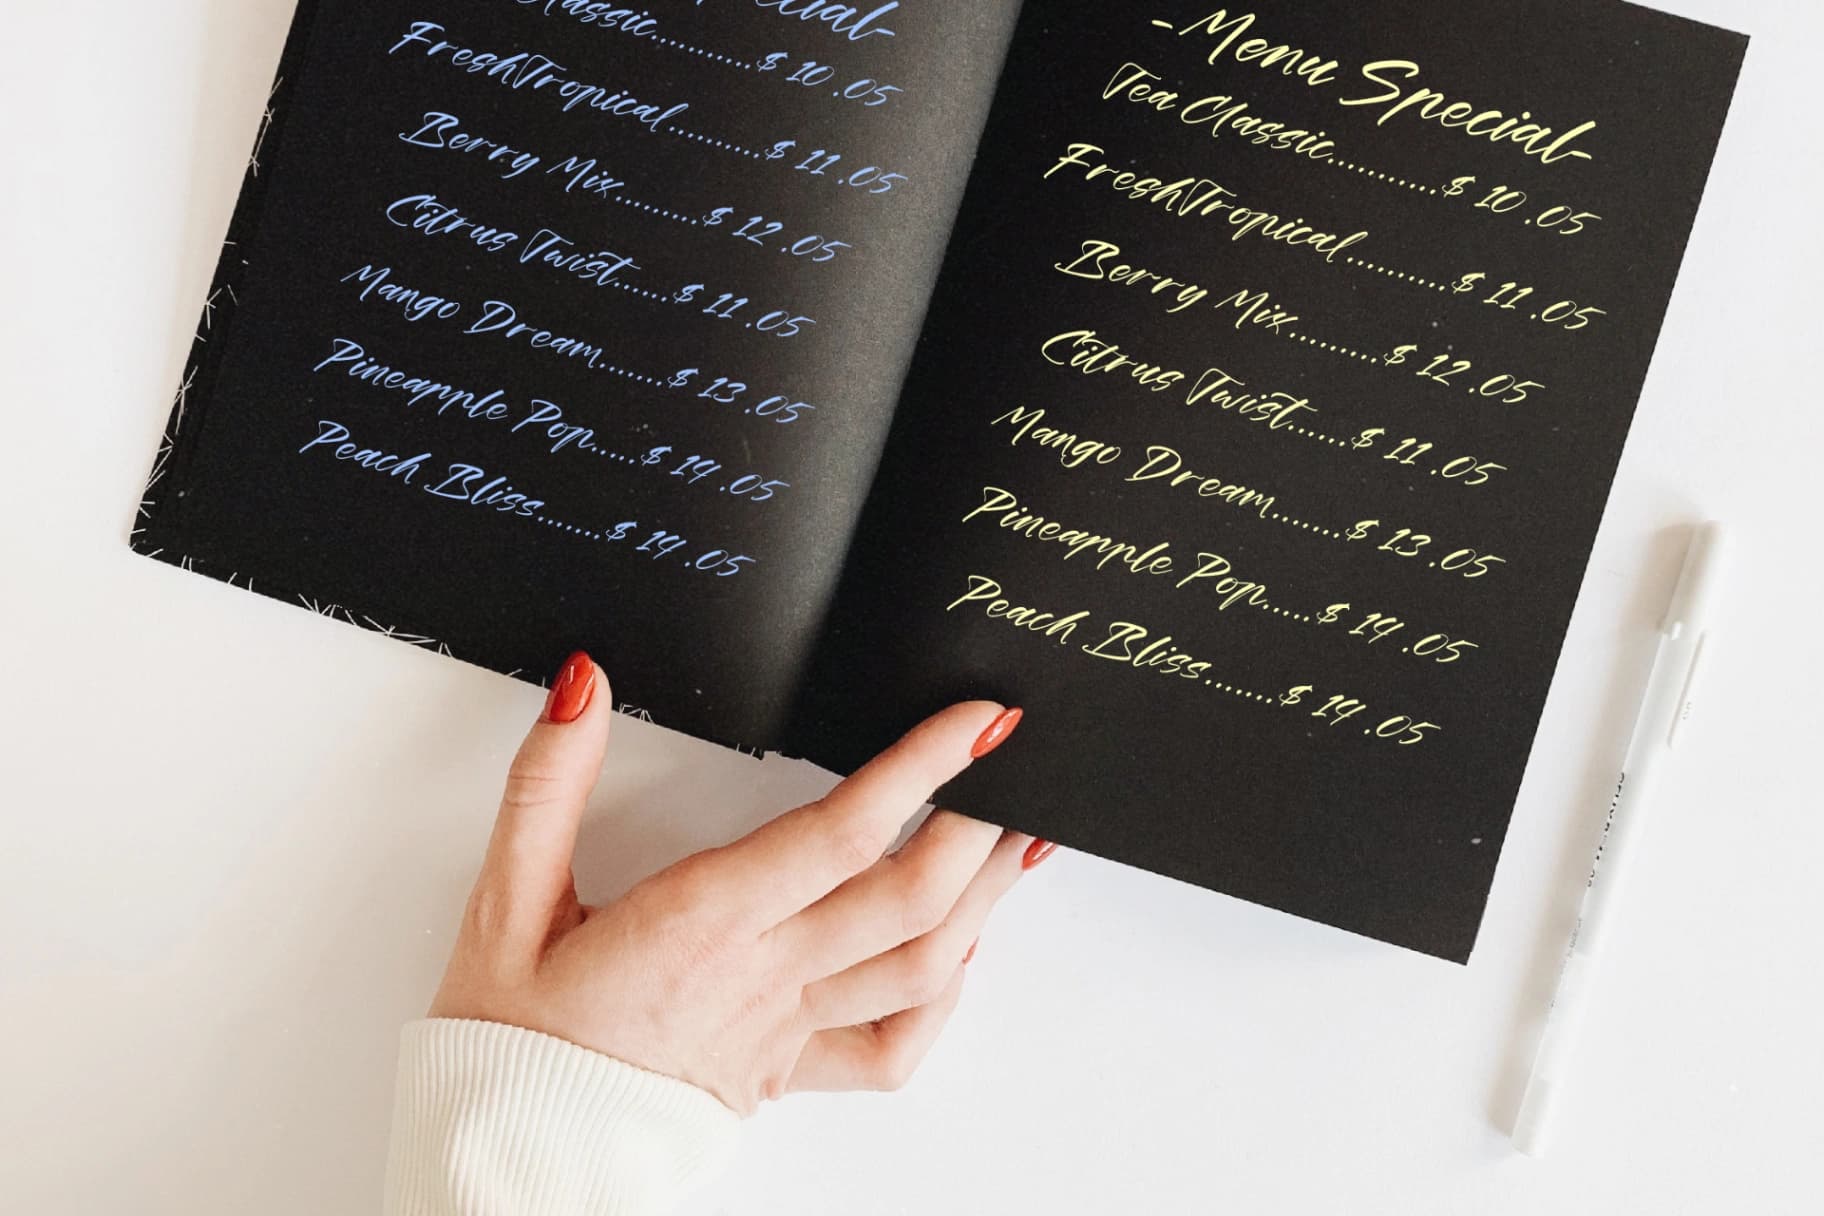 Special-
Classic..........$ 10 .05
FreshTropical..........$ 11 .05
Berry Mix.........$ 12 .05
Citrus Twist......$ 11 .05
Mango Dream.......$ 13 .05
Pineapple Pop.....$ 14 .05
Peach Bliss.......$ 14 .05
-Menu Special-
Tea Classic...........$ 10 .05
FreshTropical..........$ 11 .05
Berry Mix..........$ 12 .05
Citrus Twist......$ 11 .05
Mango Dream.......$ 13 .05
Pineapple Pop.....$ 14 .05
Peach Bliss.......$ 14 .05